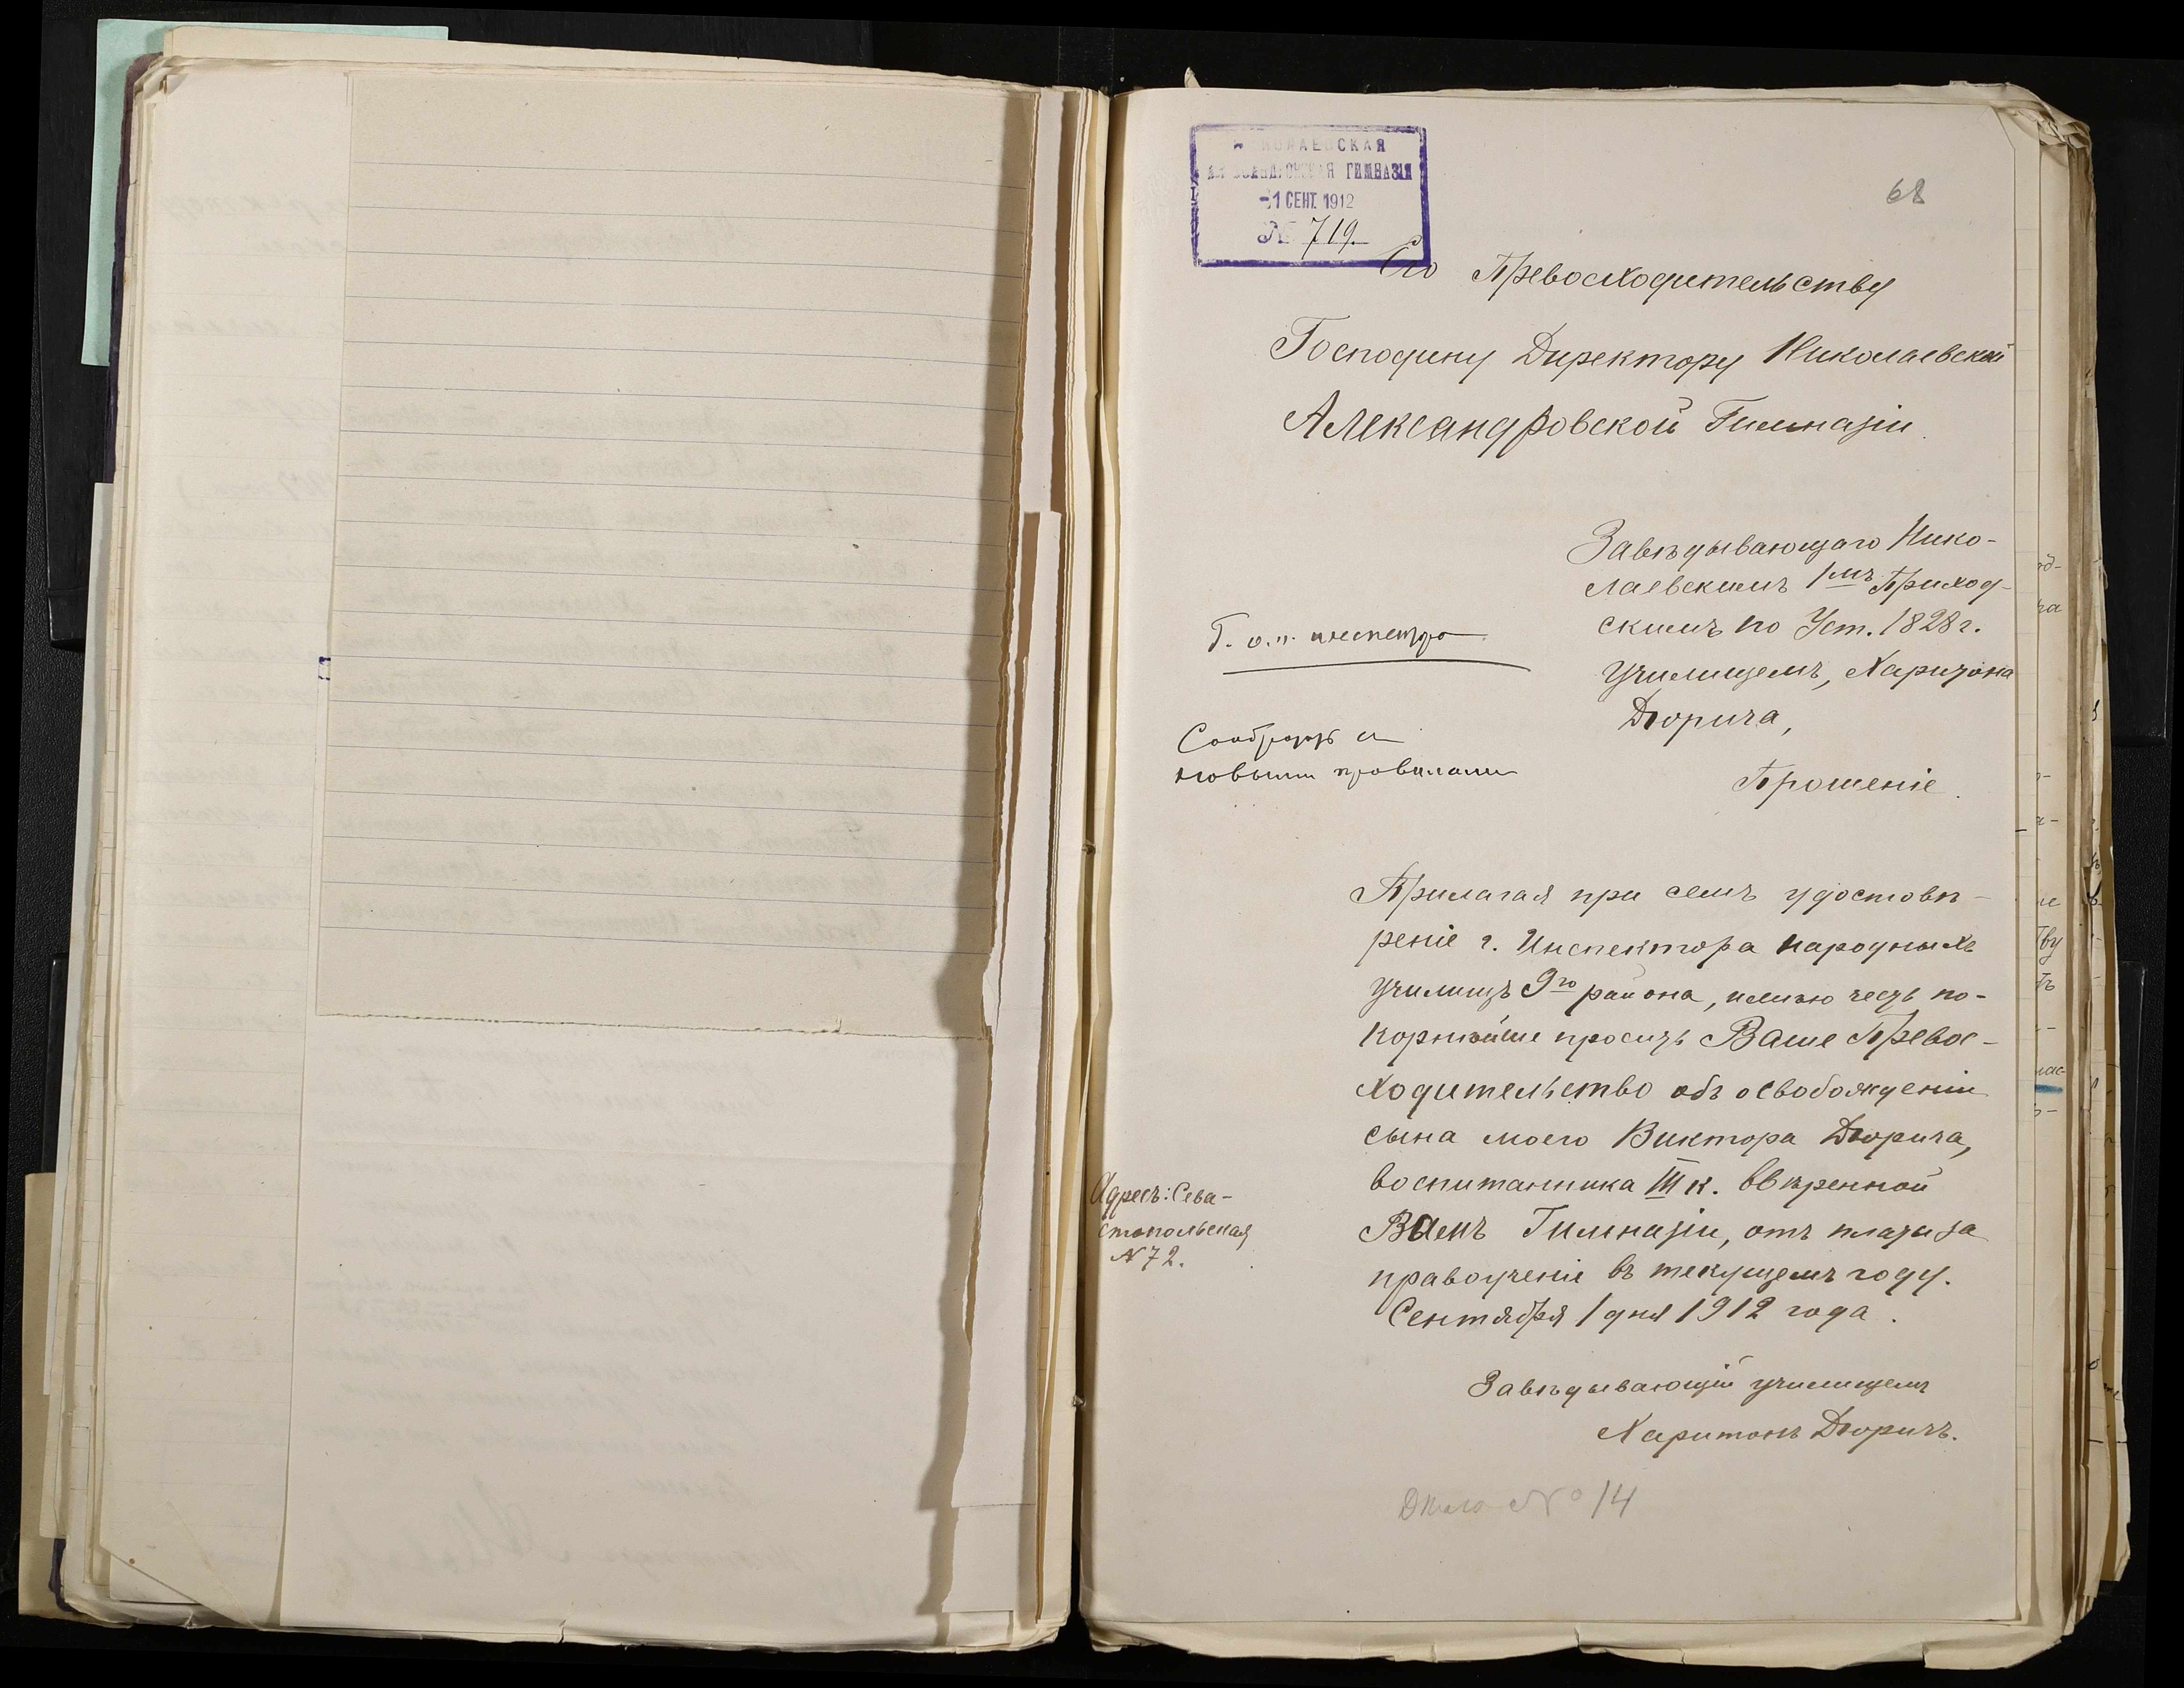 НИКОЛАЕВСКАЯ
АЛЕКСАНДРОВСКАЯ ГИМНАЗІЯ
-1 СЕНТ. 1912
№ 719.
68
Его Превосходительству
Господину Директору Николаевской
Александровской Гимназіи.
Завѣдывающаго Нико-
лаевскимъ 1мъ Приход-
скимъ по Уст. 1828 г.
училищемъ, Харитона
Дюрича,
Прошеніе.
Г. и. п. инспектора
Сообразить съ
новыми правилами
Прилагая при семъ удостовѣ-
реніе г. Инспектора народныхъ
училищъ 9го района, имѣю честь по-
корнѣйше просить Ваше Превос-
ходительство объ освобожденіи
сына моего Виктора Дюрича,
воспитанника III к. ввѣренной
Вамъ Гимназіи, отъ платы за
правоученіе въ текущемъ году.
Сентября 1 дня 1912 года.
Адресъ: Сева-
стопольская
№ 72.
Завѣдывающій училищемъ
Харитонъ Дюричъ.
Дѣло № 14